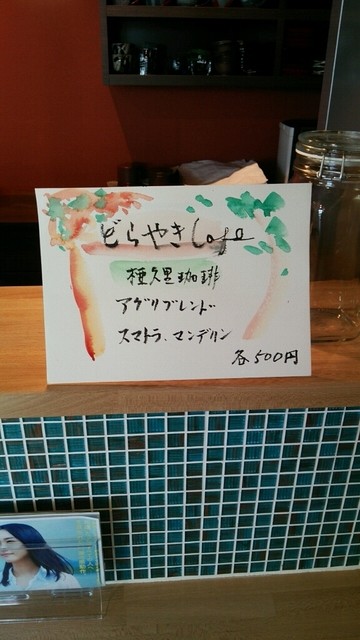 どらやきCafe
亜久里珈琲
アグリブレンド
スマトラ.マンデリン
各500円